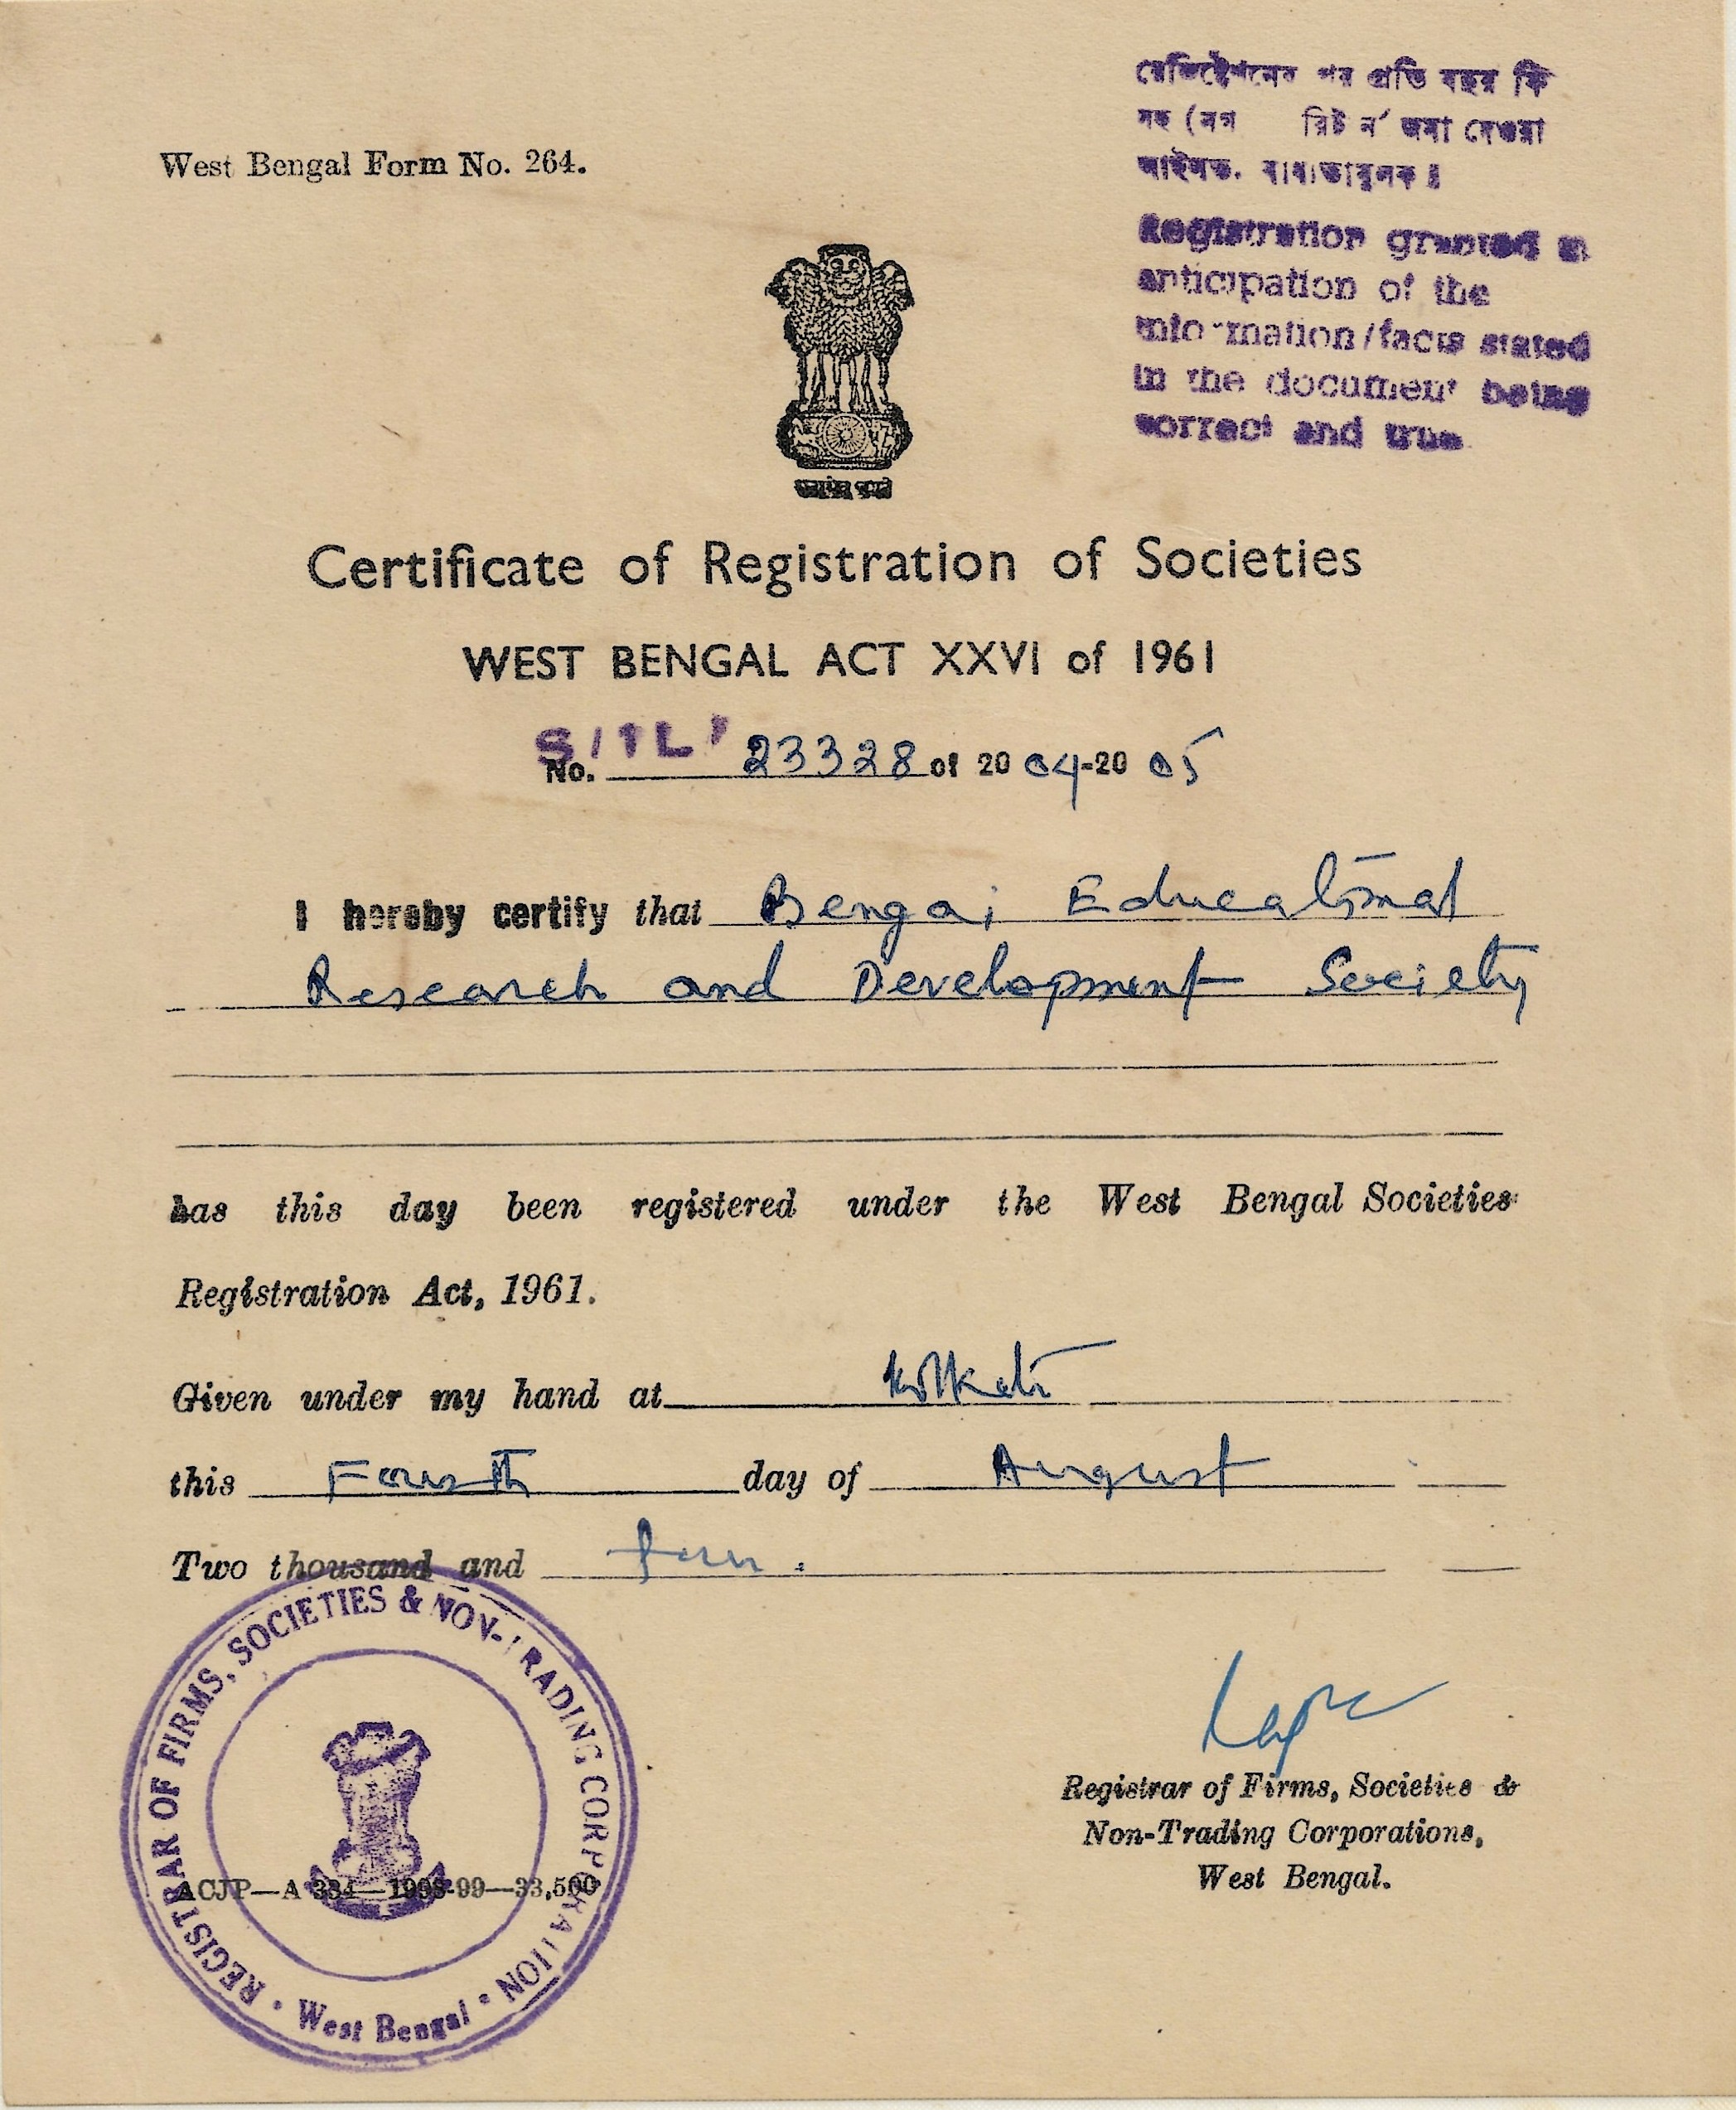 West Bengal Form No. 264.
রেজিষ্ট্রেশনের পর প্রতি বছর ফি
সহ রিটার্ন জমা দেওয়া
আইনতঃ বাধ্যতামূলক॥
Registration granted in
anticipation of the
information/facts stated
in the document being
correct and true
Certificate of Registration of Societies
WEST BENGAL ACT XXVI of 1961
S/1L/
No. 23328 of 2004-2005
I hereby certify that Bengai Educational
Research and Development Society
has this day been registered under the West Bengal Societies
Registration Act, 1961.
Given under my hand at Kolkata
this Fourth day of August
Two thousand and four.
REGISTRAR OF FIRMS, SOCIETIES & NON-TRADING CORPORATION
• West Bengal •
ACJP—A 334—1998-99—33,500
Registrar of Firms, Societies &
Non-Trading Corporations,
West Bengal.